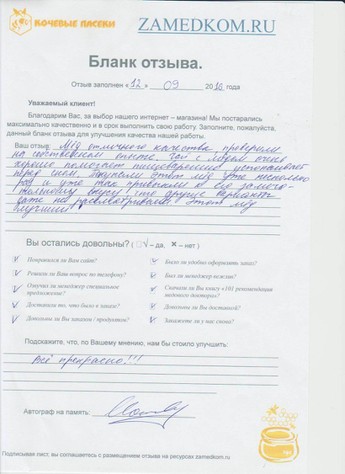 КОЧЕВЫЕ ПАСЕКИ
ZAMEDKOM.RU
Бланк отзыва.
Отзыв заполнен «12» 09 2016 года
Уважаемый клиент!
Благодарим Вас, за выбор нашего интернет – магазина! Мы постарались
максимально качественно и в срок выполнить свою работу. Заполните, пожалуйста,
данный бланк отзыва для улучшения качества нашей работы.
Ваш отзыв: Мёд отличного качества, проверели
на собственном опыте. Чай с мёдом очень
хорошо помогает пищеварению, успокаивает
перед сном. Покупаем этот мёд уже несколько
раз и уже так привыкли к его
вкусу! что другие варианты
даже не рассматриваем. Этот мёд
лучший!
Вы остались довольны? ( √ – да, × – нет )
Понравился ли Вам сайт?
Решили ли Вам вопрос по телефону?
Озвучил ли менеджер специальное
предложение?
Доставили то, что было в заказе?
Довольны ли Вы заказом / продуктом?
Было ли удобно оформлять заказ?
Был ли менеджер вежлив?
Скачали ли Вы книгу «101 рекомендация
медового доктора»?
Довольны ли Вы доставкой?
Закажете ли у нас снова?
Подскажите, что, по Вашему мнению, нам бы стоило улучшить:
Всё прекрасно!!!
Автограф на память:
Подписывая лист, вы соглашаетесь с размещением отзыва на ресурсах zamedkom.ru